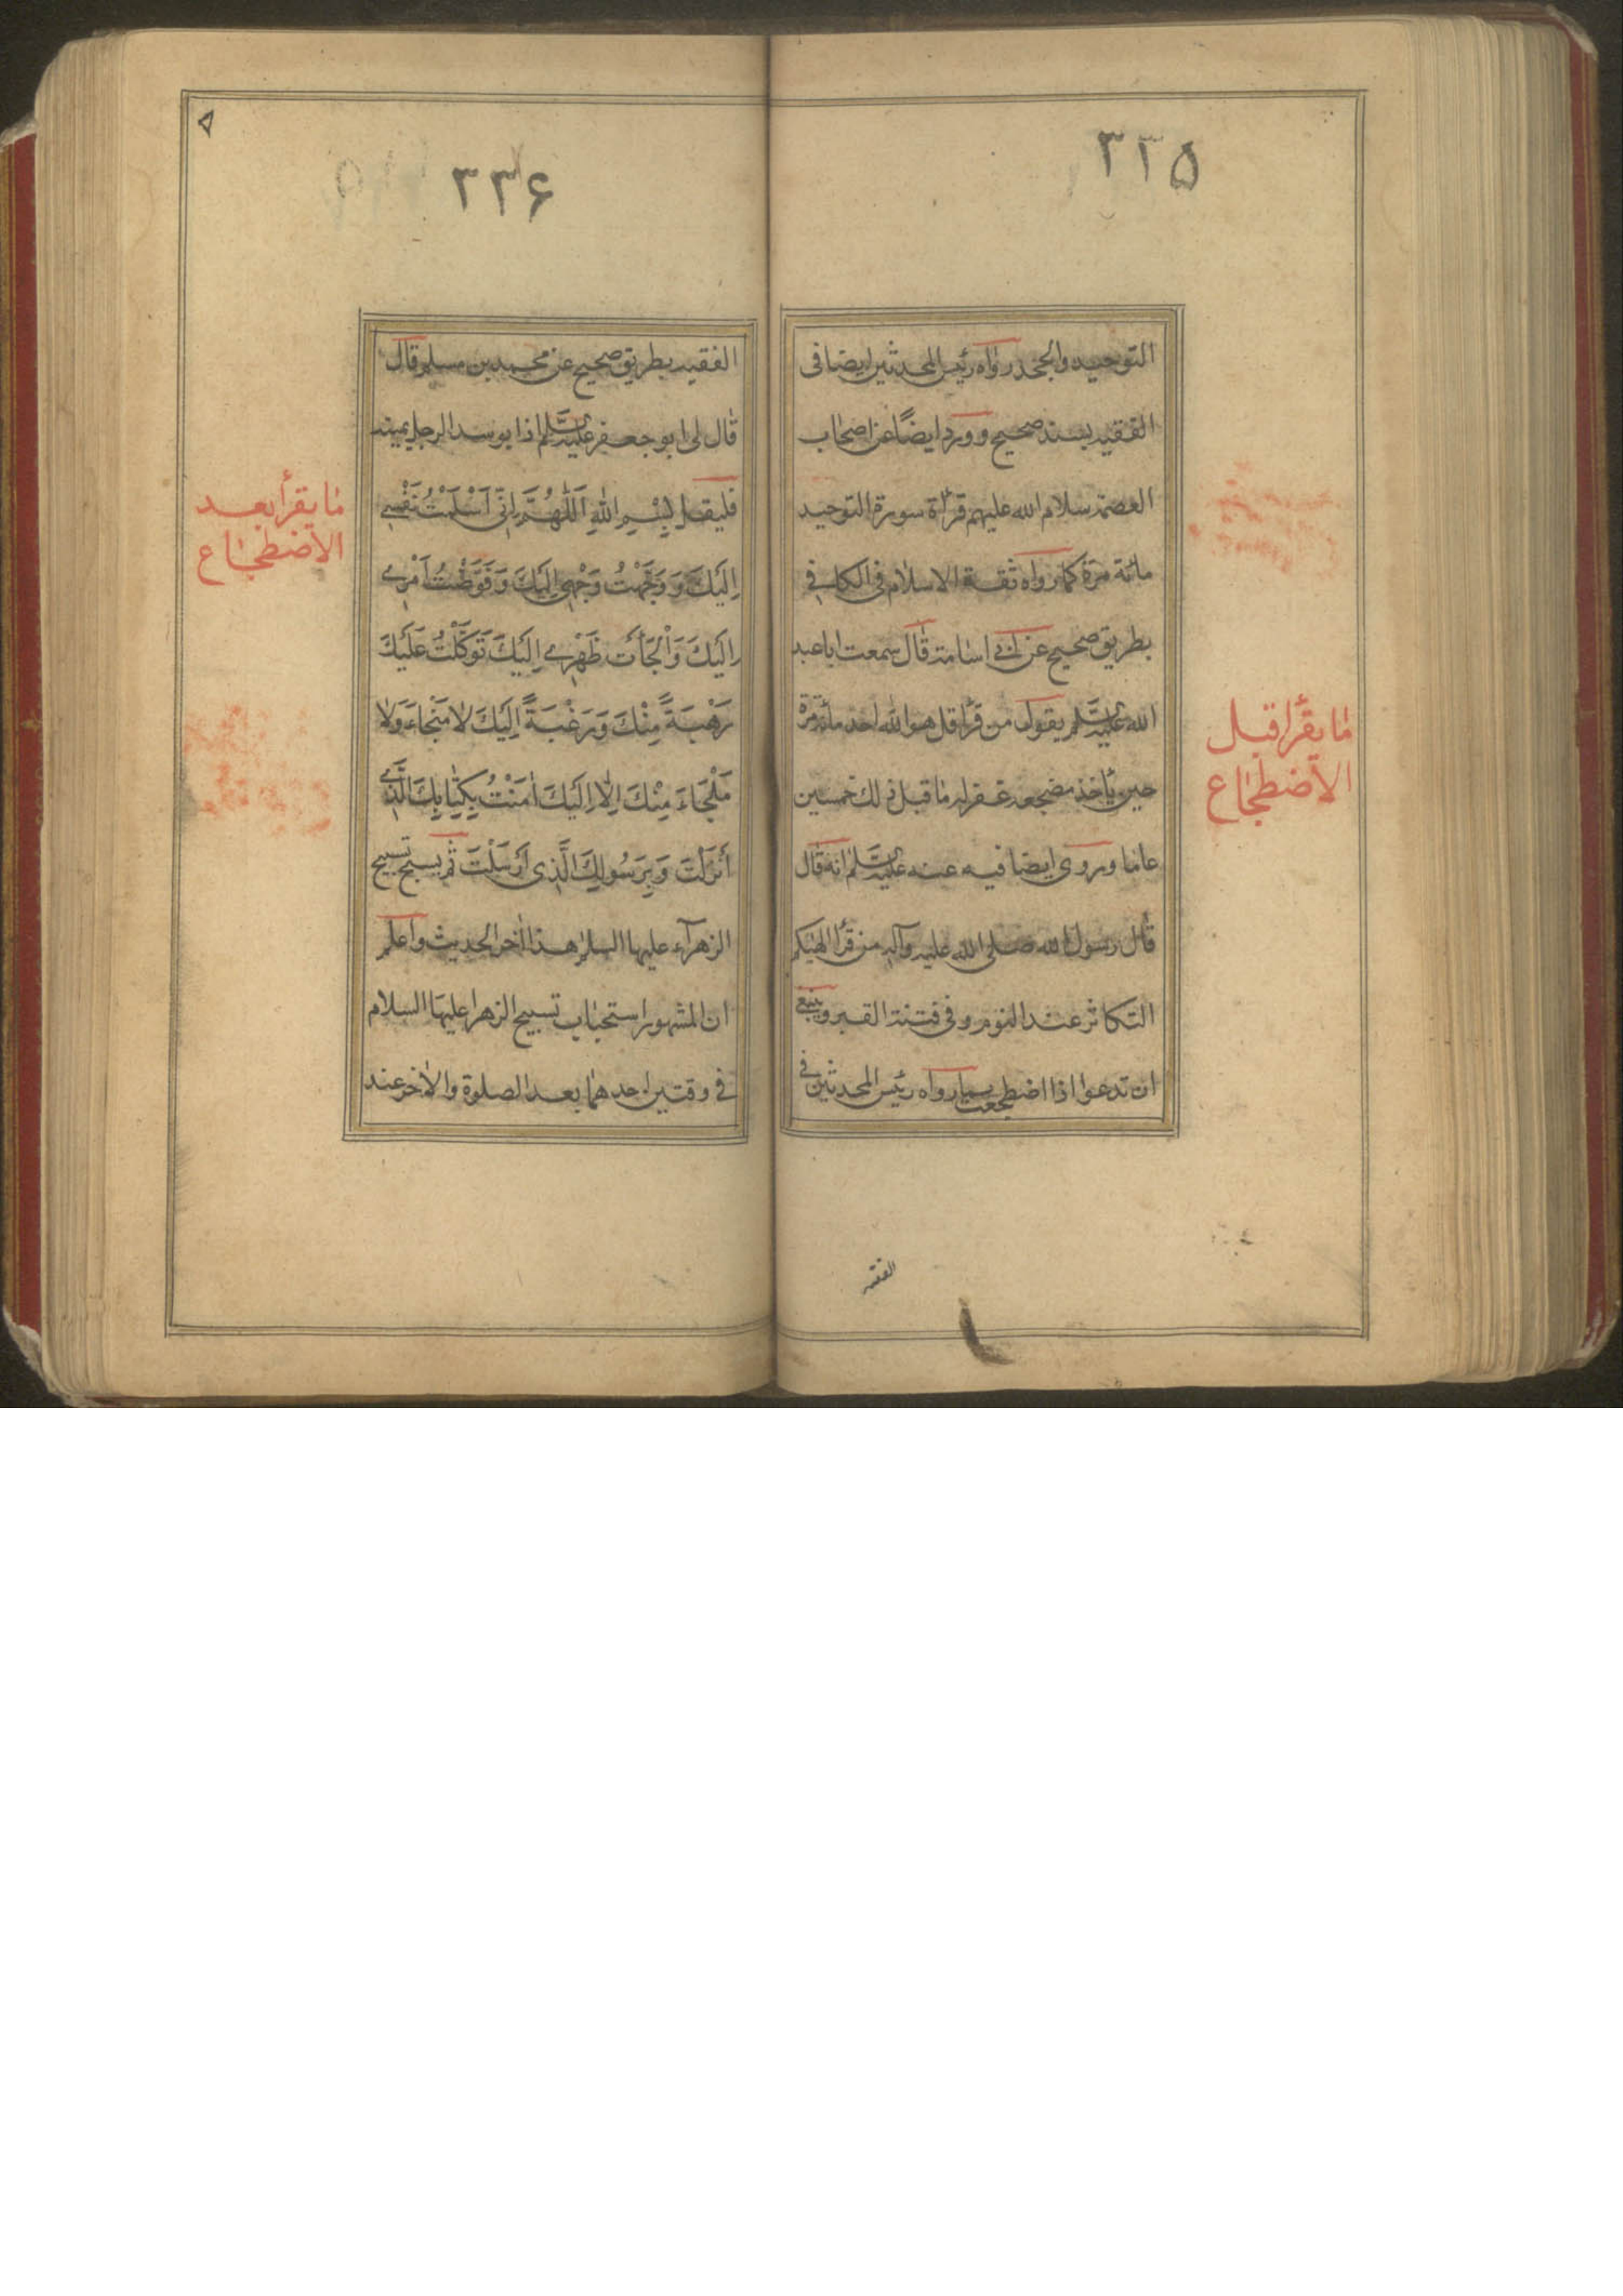 ۳۳۵
التوحيد والجحد رواه رئيس المحدثين ايضا فى
الفقيه بسند صحيح وورد ايضاً عن اصحاب
العصمة سلام الله عليهم قرائة سورة التوحيد
مائة مرة كما رواه ثقة الاسلام فى الكافى
بطريق صحيح عن ابى اسامة قال سمعت ابا عبد
الله عليه السلم يقول من قرأ قل هو الله احد مائة مرة
حين ياخذ مضجعه غفر له ما قبل ذلك خمسين
عاما وروى ايضا فيه عنه عليه السلم انه قال
قال رسول الله صلى الله عليه وآله من قرأ الهيكم
التكاثر عند النوم وفى فتنة القبر وينبغى
ان تدعوا اذا اضطجعت بما رواه رئيس المحدثين فى
ما يقرأ قبل
الاضطجاع
الفقيه
۳۳۶
الفقيه بطريق صحيح عن محمد بن مسلم قال
قال لى ابو جعفر عليه السلم اذا توسد الرجل يمينه
فليقل بِسْمِ اللهِ اَللّٰهُمَّ اِنّى اَسْلَمْتُ نَفْسِى
اِلَيْكَ وَ وَجَّهْتُ وَجْهِى اِلَيْكَ وَ فَوَّضْتُ اَمْرِى
اِلَيْكَ وَاَلْجَأْتُ ظَهْرِى اِلَيْكَ تَوَكَّلْتُ عَلَيْكَ
رَهْبَةً مِنْكَ وَ رَغْبَةً اِلَيْكَ لا مَنْجَاءَ وَلا
مَلْجَاءَ مِنْكَ اِلّا اِلَيْكَ اٰمَنْتُ بِكِتٰابِكَ الَّذى
اَنْزَلْتَ وَبِرَسُولِكَ الَّذى اَرْسَلْتَ ثم يسبح تسبيح
الزهرآء عليها السلم هذا اخر الحديث واعلم
ان المشهور استحباب تسبيح الزهرا عليها السلام
فى وقتين احدهما بعد الصلوة والاخر عند
ما يقرأ بعد
الاضطجاع